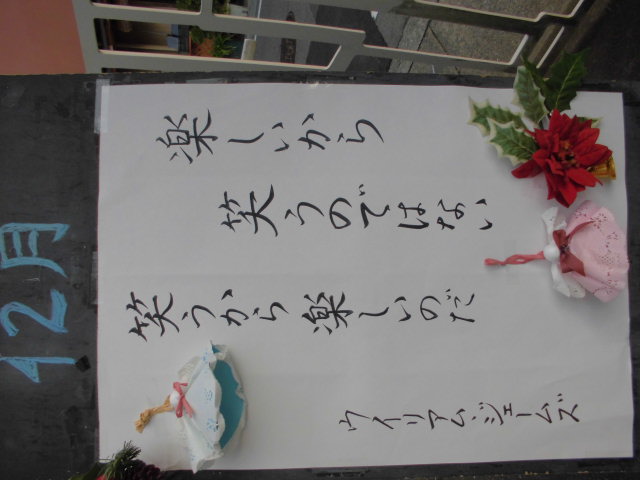 12月
楽しいから
笑うのではない
笑うから楽しいのだ
ウイリアムジェームズ